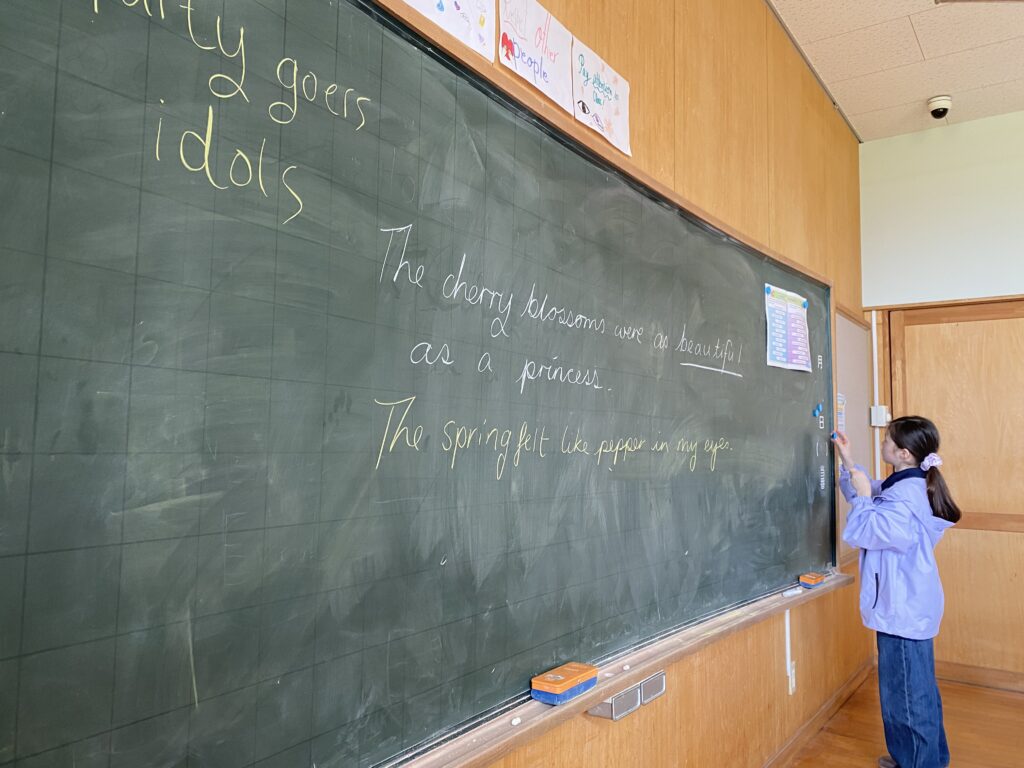 other
people
party goers
idols
The cherry blossoms were as beautiful
as a princess.
The spring felt like pepper in my eyes.